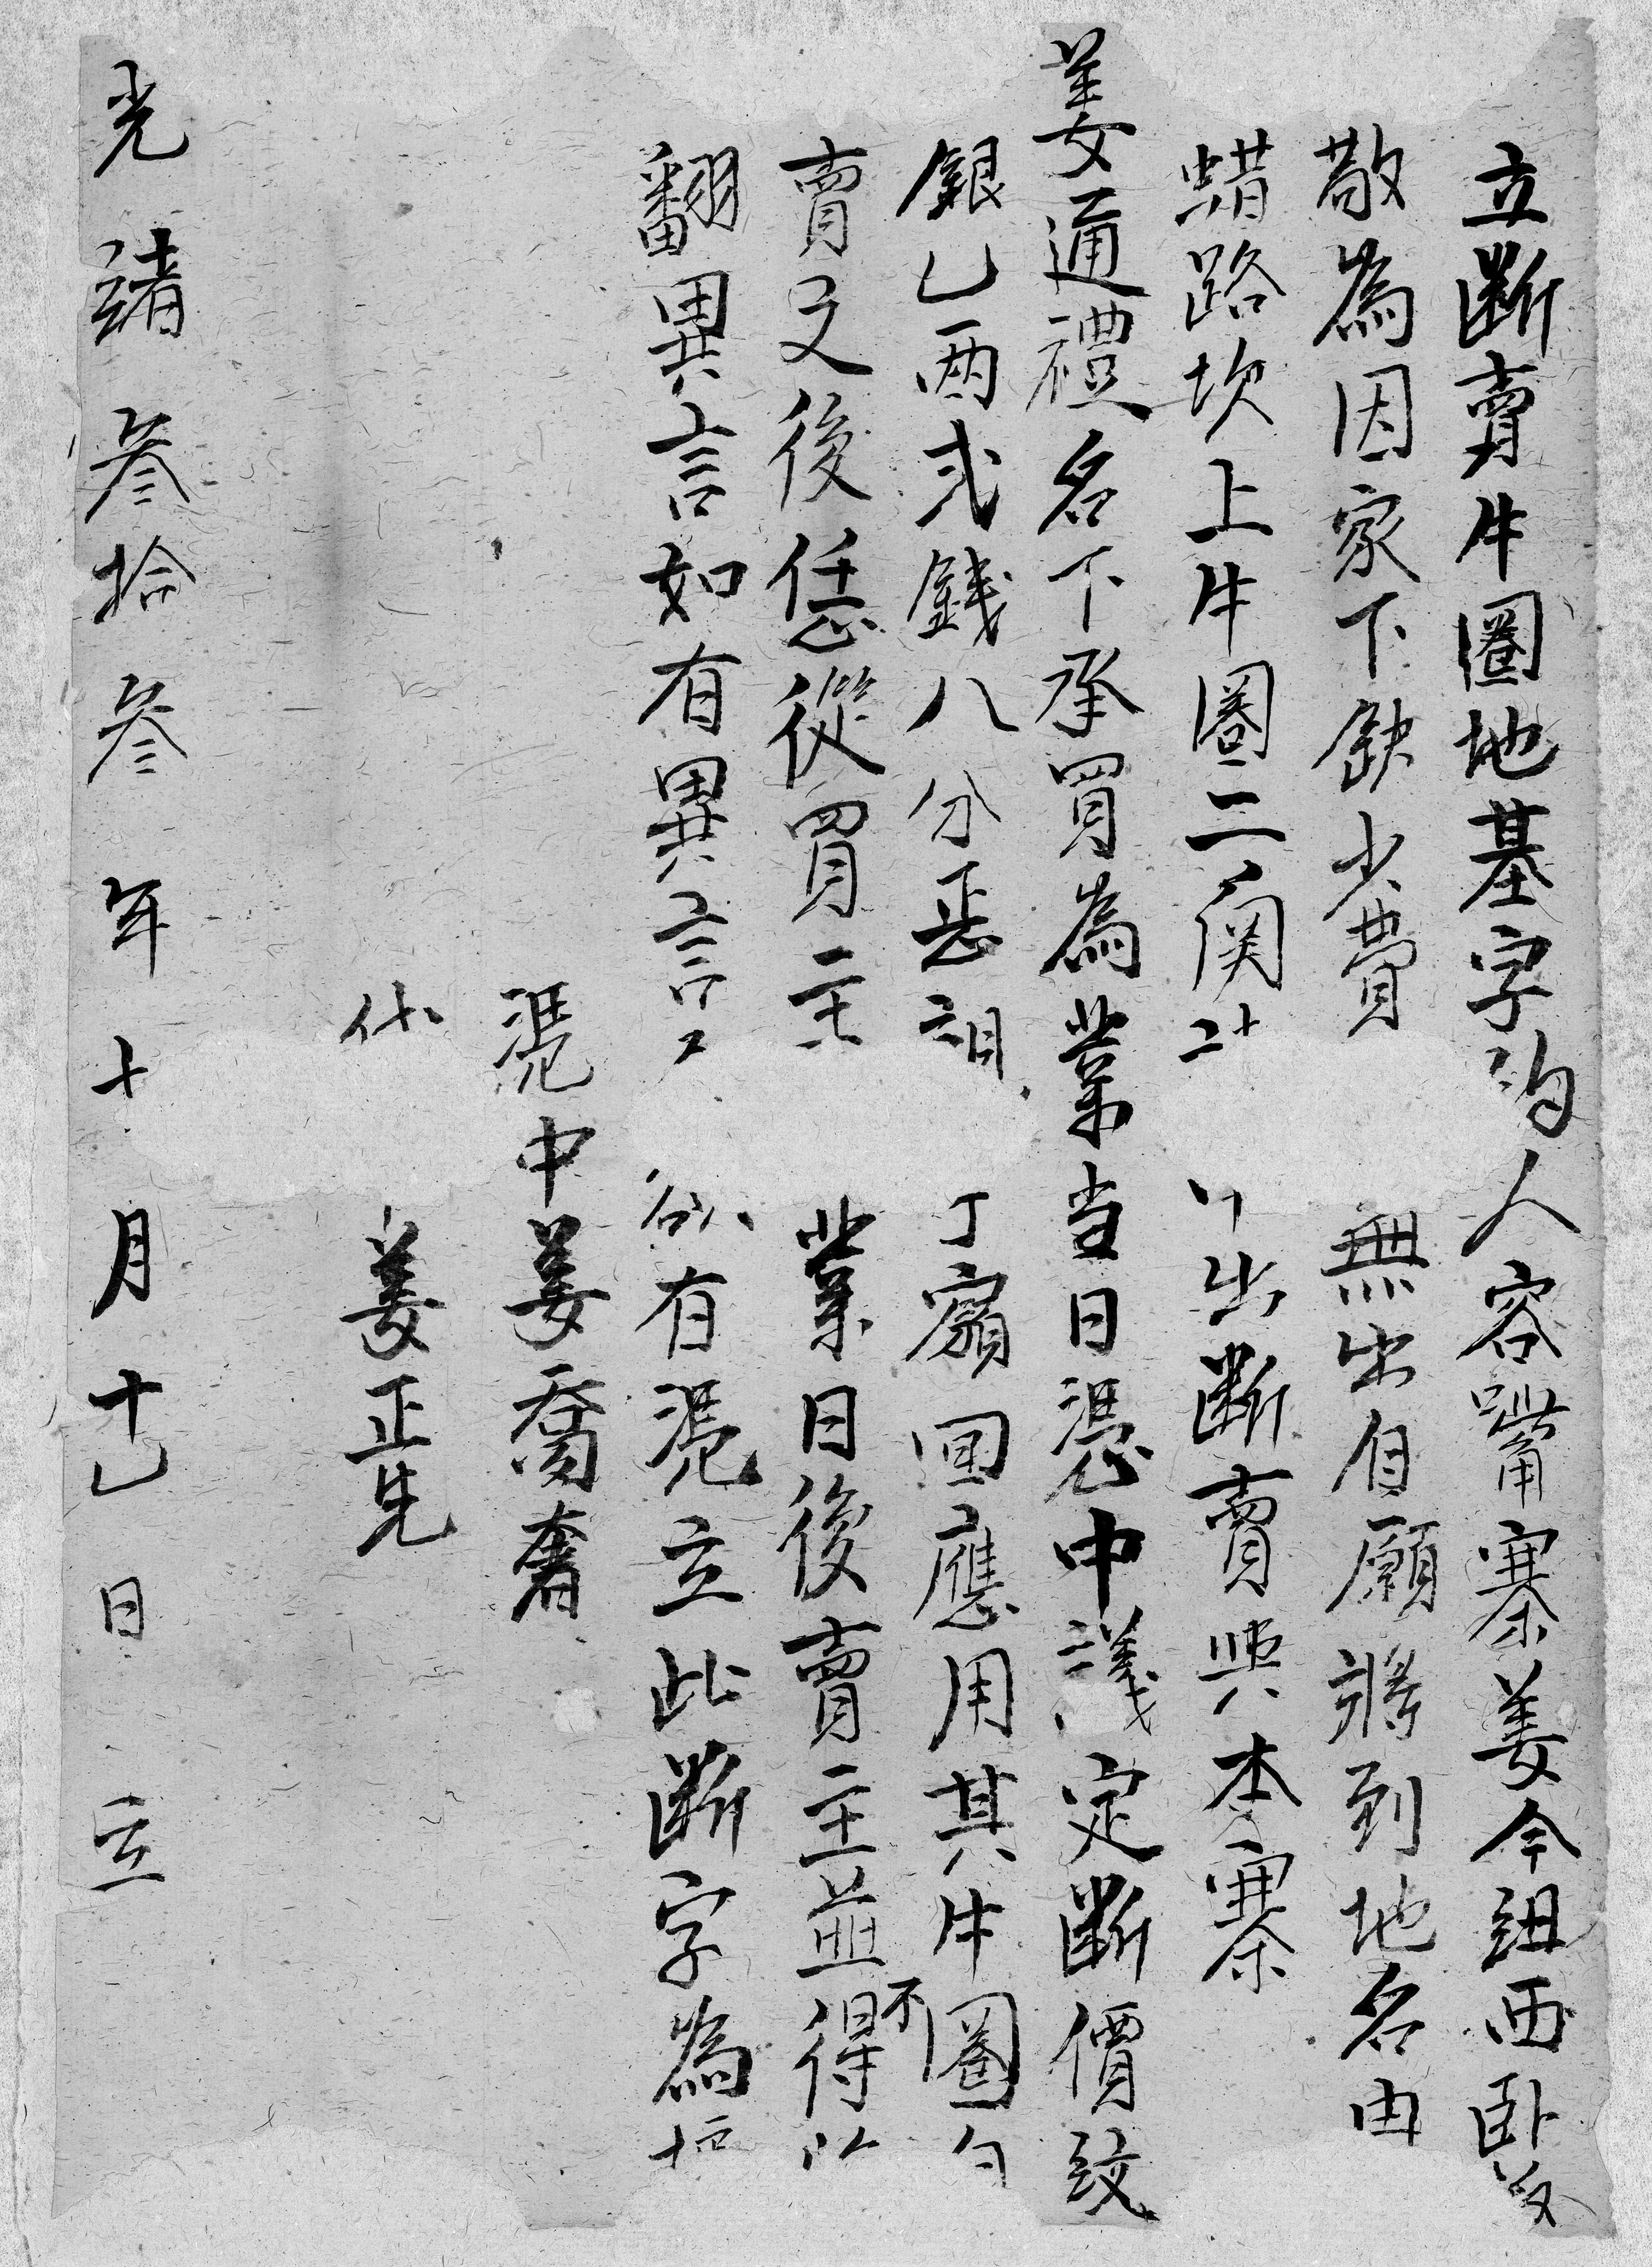 立斷賣牛圈地基字約人容嘴寨姜今組西臥
敬為因家下缺少費無出自願將到地名由
蜡路坎上牛圈二间出斷賣與本寨
姜通禮名下承買為業当日憑中議定斷價紋
銀乚両弍錢八分悪親丁寡回應用其牛圈
賣又後恁從買主業日後賣主並不得
翻異言如有異言欲有凴立此斷字為據
凴中姜喬奮
代姜正先
光緒叁拾叁年十月十乚日立